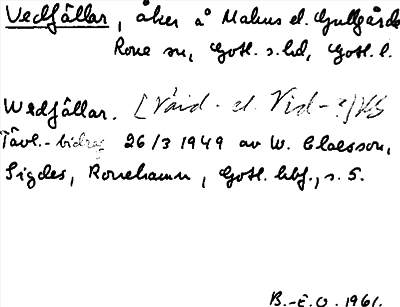 Vedfâllar, åker å Malms el. Gullgårde
Rone sn, Gotl. s. hd, Gotl. l.
Wedfâllar. [Våid- el. Vid-?] HS
Tävl.-bidrag 26/3 1949 av W. Claesson,
Sigdes, Ronehamn, Gotl. hbf., s. 5.
B.-E.O. 1961.